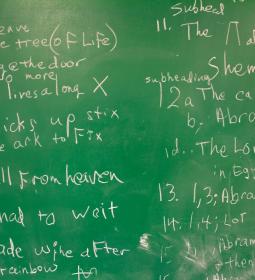 eave
e tree (of Life)
g@the door
o more
lives along X
icks up stix
e ark to Fix
ll From heaven
nal to wait
ade wine after
rainbow
Subhead
11. The
subheading Shem
12a The ca
b. Abra
d. The Lor
in Eg
13. 1,3; Abra
14. 1,4; Lot
15
Abram
then